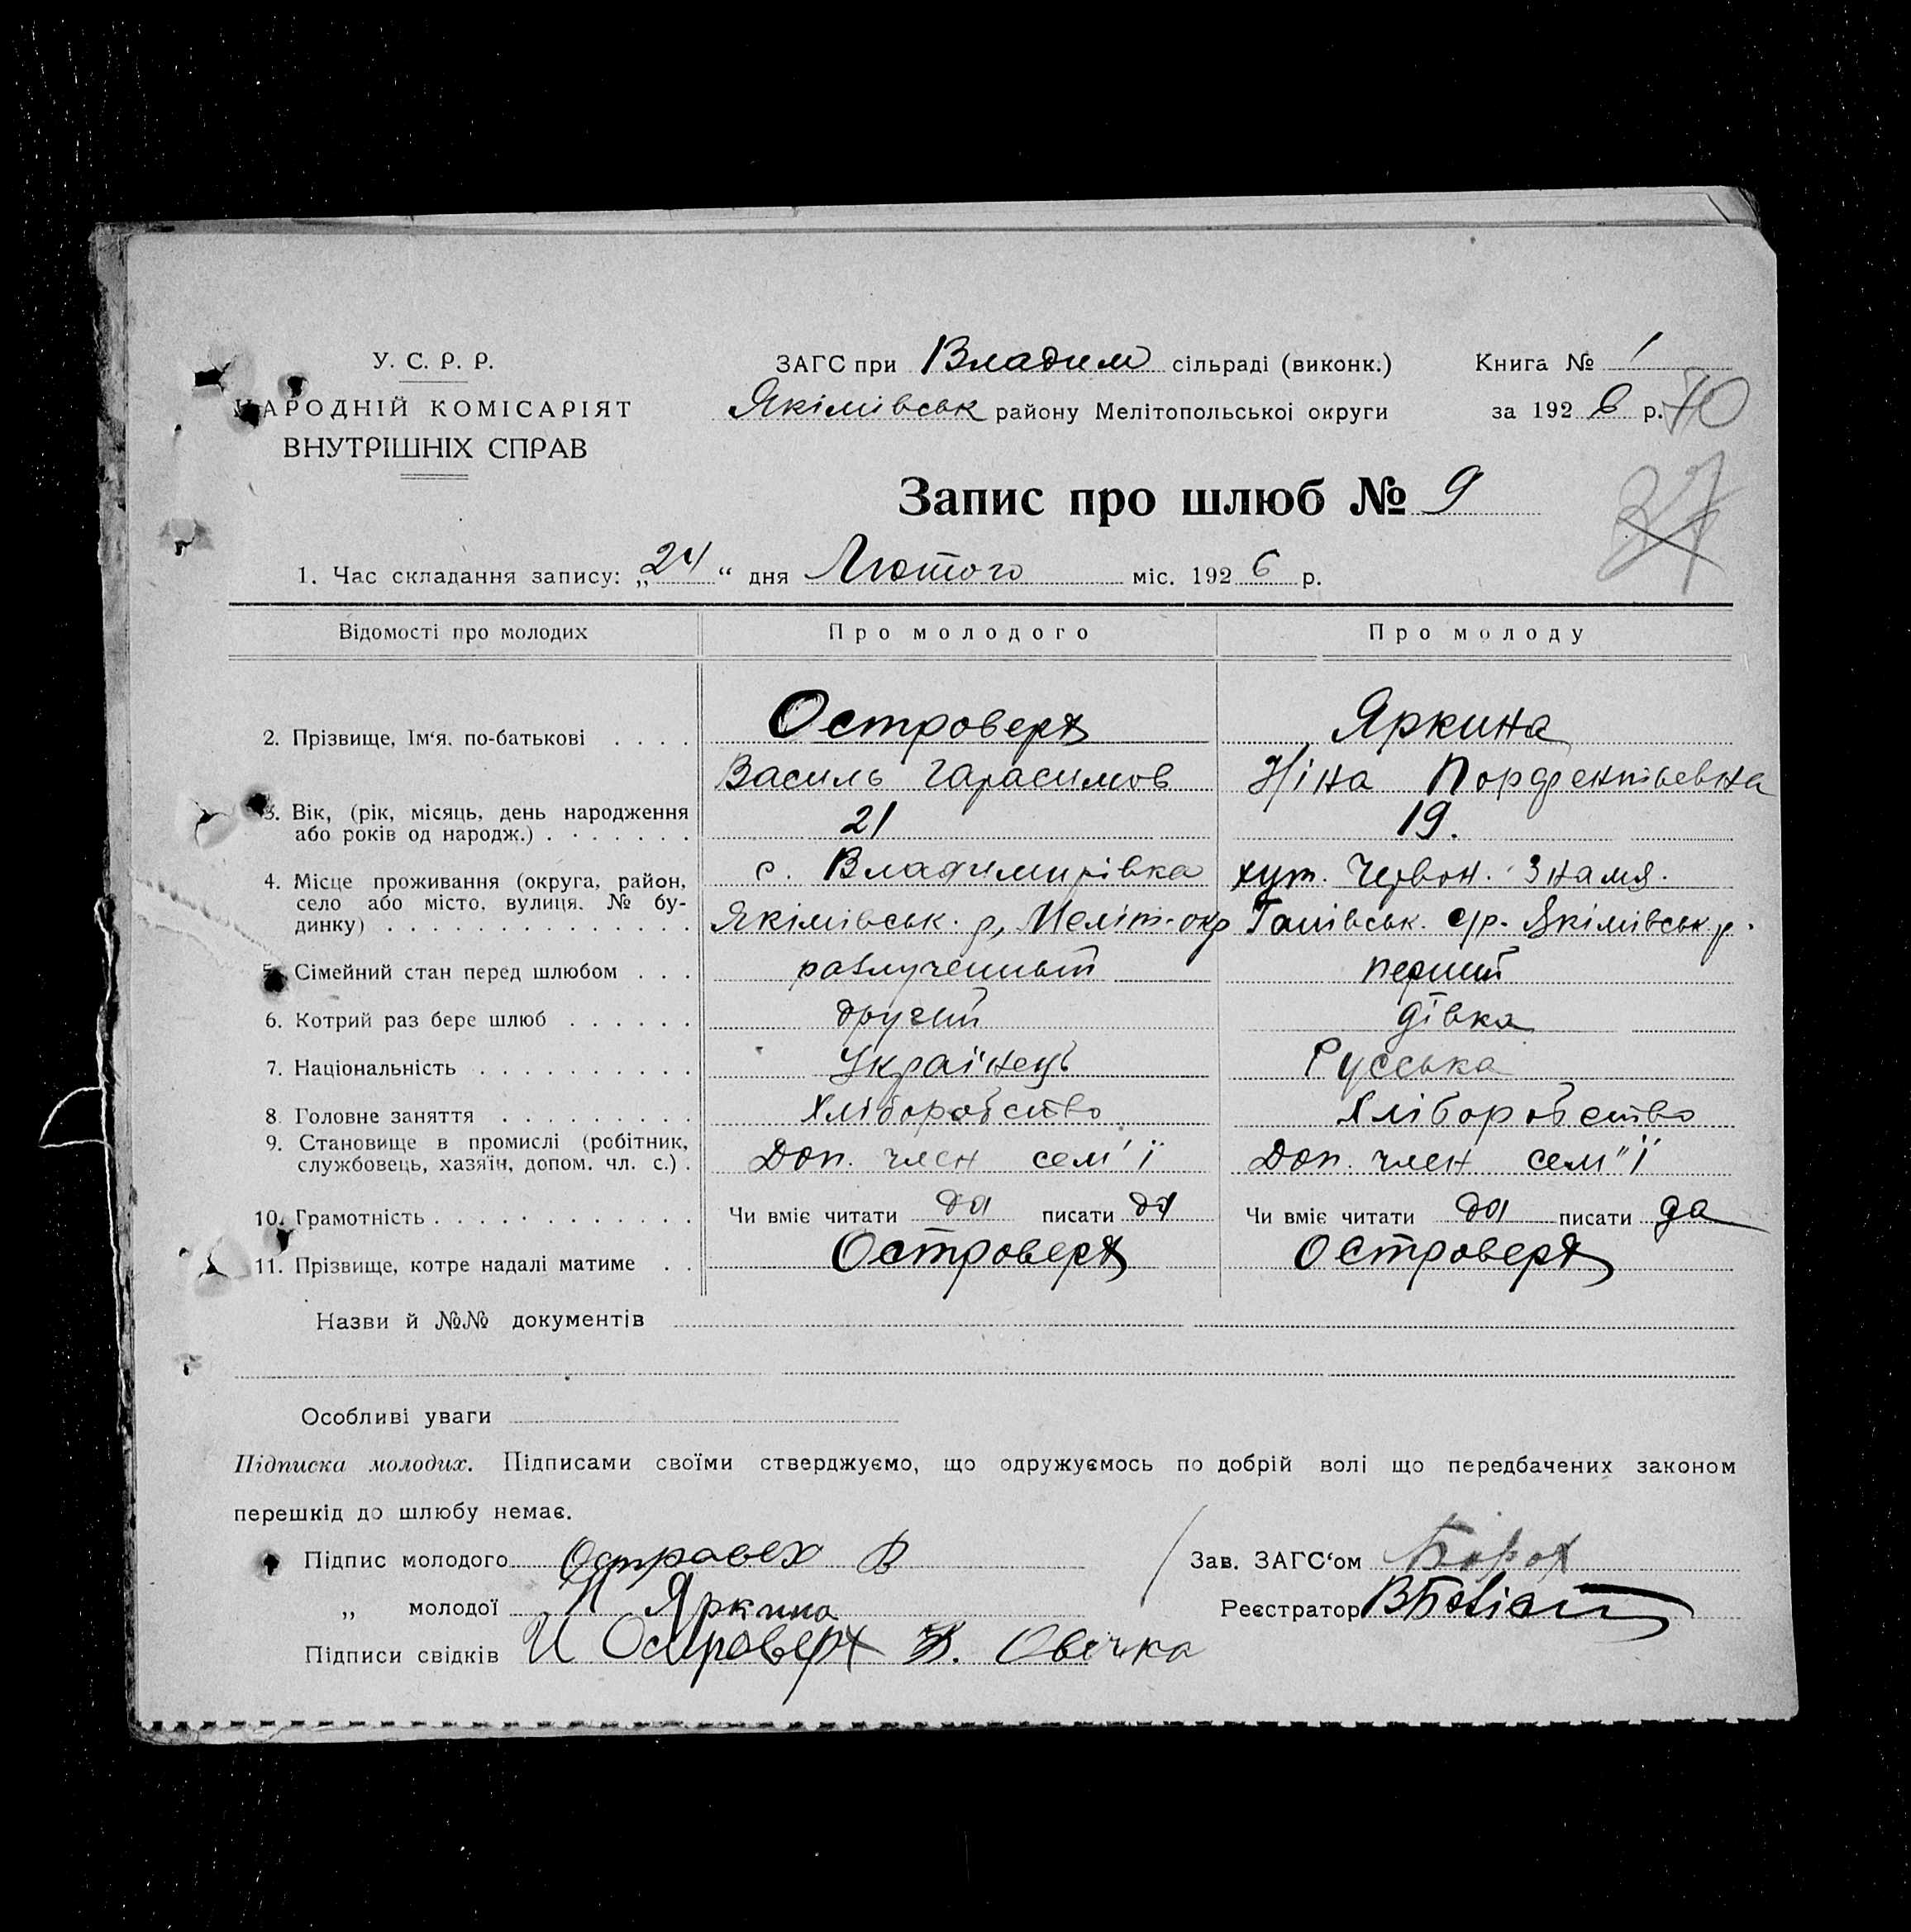 У. С. Р. Р.
НАРОДНІЙ КОМІСАРІЯТ
ВНУТРІШНІХ СПРАВ
ЗАГС при Владим сільраді (виконк.)
Якімівськ району Мелітопольської округи
Книга № 1
за 1926 р.
70
37
Запис про шлюб № 9
1. Час складання запису: „24“ дня Лютого міс. 1926 р.
Відомості про молодих Про молодого Про молоду
2. Прізвище, Ім‘я, по-батькові . . . . Островерх Яркина
Василь Гарасимов Ніна
3. Вік, (рік, місяць, день народження
або років од народж.) . . . . . . . 21 19.
4. Місце проживання (округа, район, с. Владимирівка хут. Червон. Знамя.
село або місто, вулиця, № бу-
динку) . . . . . . . . . . . . . . Якімівськ. р, Меліт-окр с/р. Якімівськ р.
5. Сімейний стан перед шлюбом . . . разлученный перший
6. Котрий раз бере шлюб . . . . . . другий дівка
7. Національність . . . . . . . . . . Українець Русська
8. Головне заняття . . . . . . . . . Хліборобство Хліборобство
9. Становище в промислі (робітник,
службовець, хазяїн, допом. чл. с.) . Доп. член сем'ї Доп. член сем"ї
10. Грамотність . . . . . . . . . . . . Чи вміє читати да писати да Чи вміє читати да писати да
11. Прізвище, котре надалі матиме . . Островерх Островерх
Назви й №№ документів
Особливі уваги
Підписка молодих. Підписами своїми стверджуємо, що одружуємось по добрій волі що передбачених законом
перешкід до шлюбу немає.
Підпис молодого В Зав. ЗАГС‘ом
„ молодої Н Яркина Реєстратор
Підписи свідків И Островерх Овечка